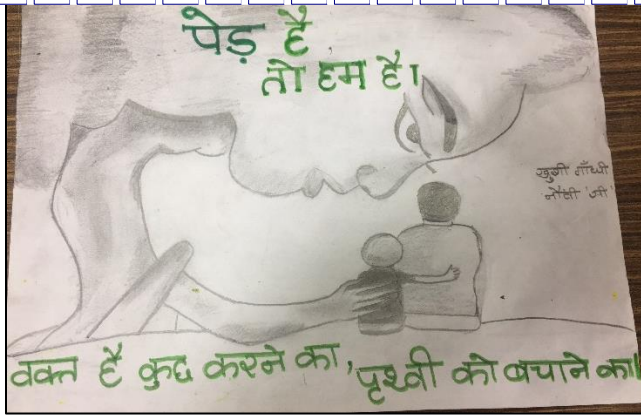 पेड़ है
तो हम है।
खुशी गाँधी
नौंवी 'जी'
वक्त है कुछ करने का, पृथ्वी को बचाने का।